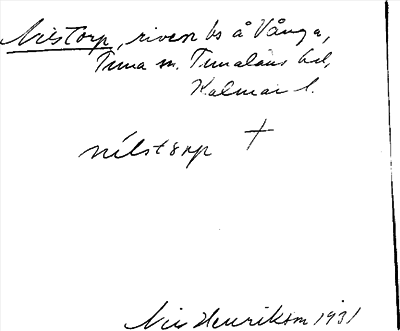 Nilstorp, riven bs å Vånga,
Tuna sn. Tunaläns hd,
Kalmar l.
nilstɷrp +
Nils Henriksson 1931